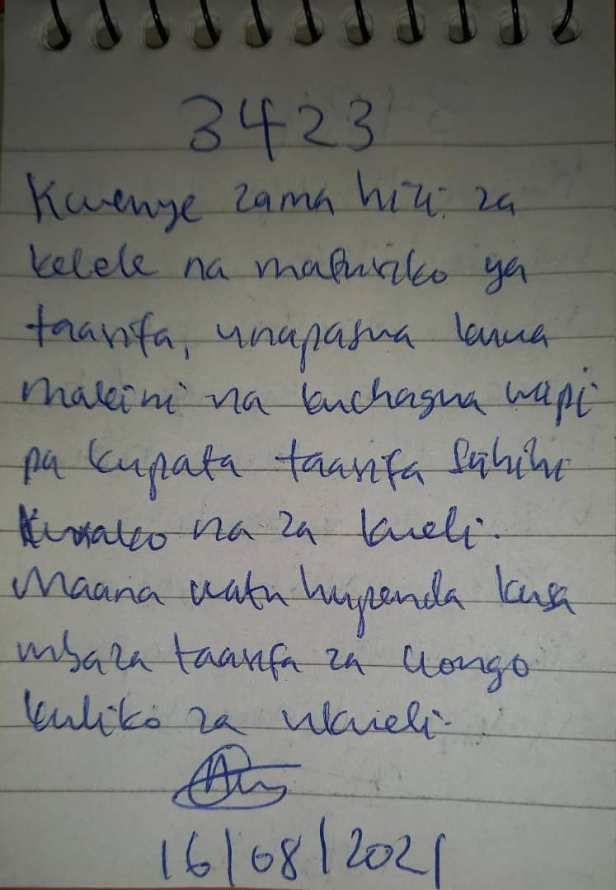 3423
Kwenye zama hizi za
kelele na mafuriko ya
taarifa, unapaswa kuwa
makini na kuchagua wapi
pa kupata taarifa sahihi
kwako na za kweli.
Maana watu hupenda kusa
mbaza taarifa za uongo
kuliko za ukweli.
16/08/2021